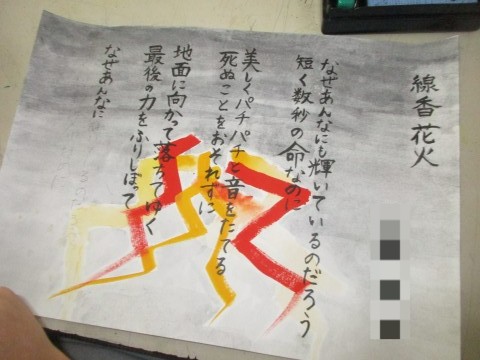 線香花火
なぜあんなにも輝いているのだろう
短く数秒の命なのに
美しくパチパチと音をたてる
死ぬことをおそれずに
地面に向かって落ちてゆく
最後の力をふりしぼって
なぜあんなに